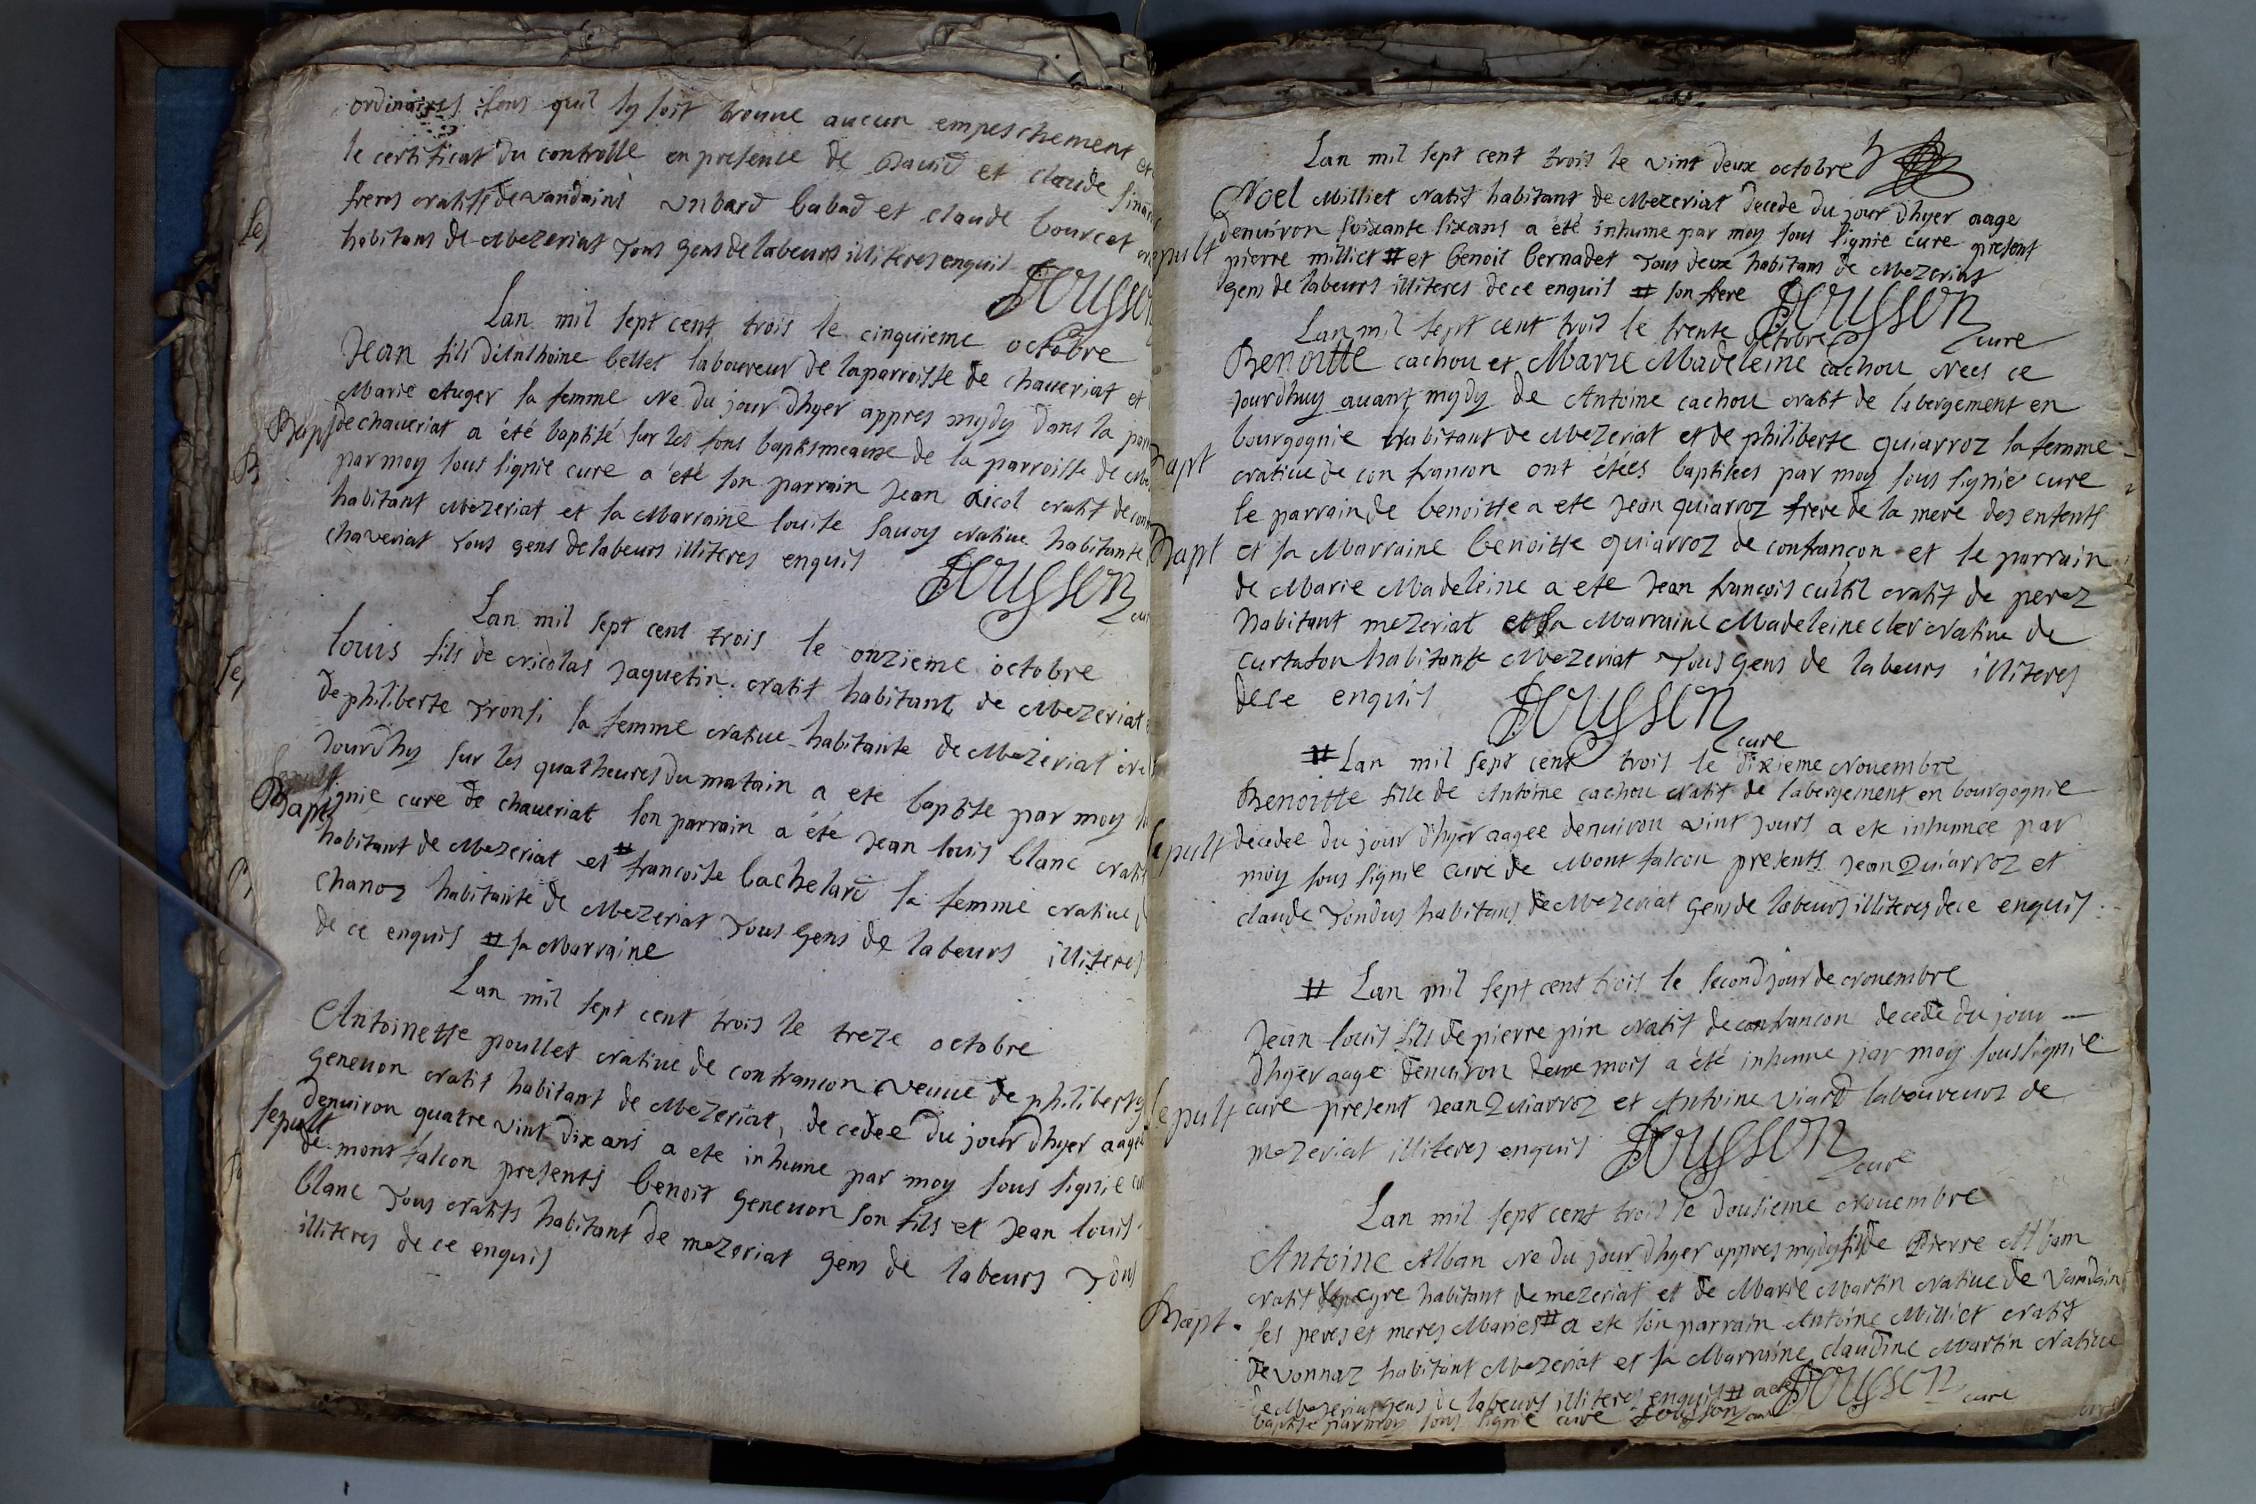 ordinaires sans quil sy soit trouue aucun empeschement et
le certificat du controlle en presente de David et claude
freres natifs de vandains vnbard babad et claude bourcet
habitans de Mezeriat Tous gens de labeurs illiteres enquis
Jousson
Lan mil sept cent trois le cinquieme octobre
Jean fils d'Anthoine bellet laboureur de laparroisse de chaueriat et
Marie Auger sa femme Ne du jour dhyer appres mydy Dans la
Bapt
de chaueriat a été baptisé sur les fons baptismeaux de la parroisse de
par moy sous signie cure a eté son parrain Jean nicol natif de
habitant Mezeriat et sa Marraine louise sauoy natiue habitante
chaveriat Tous gens de labeurs illiteres enquis
Jousson
Lan mil sept cent trois le onzieme octobre
louis fils de Nicolas Jaquetin natif habitant de Mezeriat
De philiberte Tronsi sa femme natiue habitante de Mezeriat
Jourdhy sur les quatheures du matain a ete baptise par moy
Bapt
signie cure de chaueriat son parrain a été Jean louis blanc natif
habitant de Mezeriat et # francoise bachelard sa femme natiue
chanoz habitante de Mezeriat Tous gens de labeurs illiteres
de ce enquis # sa Marraine
Lan mil sept cent trois le treze octobre
Antoinette poullet natiue de confrancon veuue de philibert
geneuon natif habitant de Mezeriat, decedee du jour dhyer aagee
sepult
Denuiron quatre vint dix ans a ete inhume par moy sous signie
de montfalcon presents benoit geneuon son fils et Jean louis
blanc Tous natifs habitant de mezeriat gens de labeurs Tous
illiteres de ce enquis
Lan mil sept cent trois le vint deux octobre
Noel Milliet Natif habitant de Mezeriat Decede du jour Dhyer aage
denuiron soixante sixans a été inhume par moy sous signie cure present
sepult
pierre milliet # et benoit bernadet Tous deux habitans de Mezeriat
gens de labeurs illiteres dece enquis # son frere Jousson cure
Lan mil sept cent trois le trente octobre
Benoitte cachou et Marie Madeleine cachou Nees ce
Jourdhuy auant mydy de Antoine cachou natif de labergement en
bourgognie habitant de Mezeriat et de philiberte quiarroz sa femme
Bapt
natiue de confrancon ont étées baptisees par moy sous signie cure
le parrain de benoitte a ete Jean quiarroz frere de la mere des enfents
Bapt
et sa Marraine benoitte quiarroz de confrançon et le parrain
de Marie Madeleine a ete Jean françois cultil natif de perez
habitant mezeriat et sa Marraine Madeleine cler natiue de
curtafon habitante Mezeriat Tous gens de labeurs illiteres
dece enquis Jousson cure
# Lan mil sept cent trois le dixieme Nouembre
Benoitte fille de Antoine cachou natif de labergement en bourgognie
sepult
decedee du jour dhyer aagee denuiron vint jours a ete inhumee par
moy sous signie cure de Montfalcon presents Jean Quiarroz et
claude Tondus habitans de Mezeriat gens de labeurs illiteres dece enquis
# Lan mil sept cent trois le second jour de Nouembre
Jean louis fils de pierre pin natif de confrancon decede du jour
dhyer aage denuiron deux mois a été inhume par moy sous signie
sepult
cure present Jean Quiarroz et Antoine viard laboureurs de
mezeriat illiteres enquis Jousson cure
Lan mil sept cent trois le dousieme Nouembre
Antoine Alban Ne du jour dhyer appres mydy fils de Pierre Alban
natif habitant de mezeriat et de Marie Martin natiue de vandain
Bapt.
ses peres et meres Maries # a ete son parrain Antoine Milliet natif
de vonnaz habitant Mezeriat et sa Marraine claudine Martin Natiue
de Mezeriat gens de labeurs illiteres enquis # a ete Jousson cure
baptise par moy sous signie cure Jousson cure